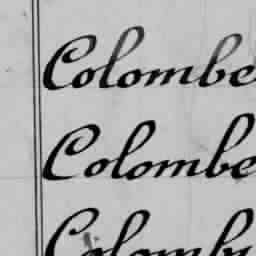 Colombe
Colombe
Colombi